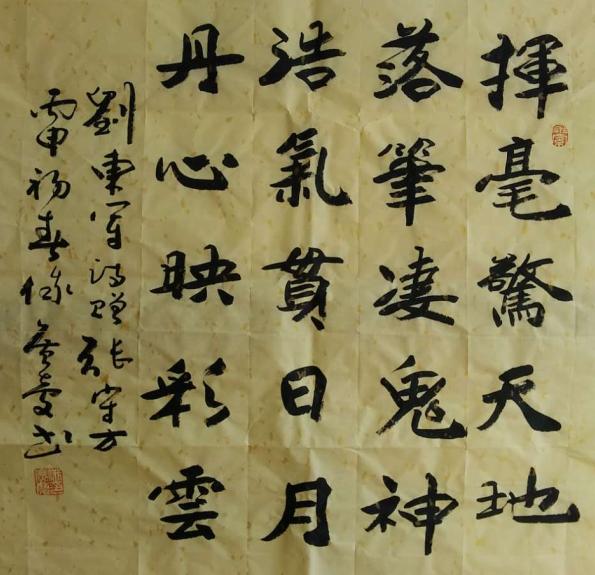 揮毫驚天地
落筆淒鬼神
浩氣貫日月
丹心映彩雲
劉東軍詩贈張守方
丙申初春
書